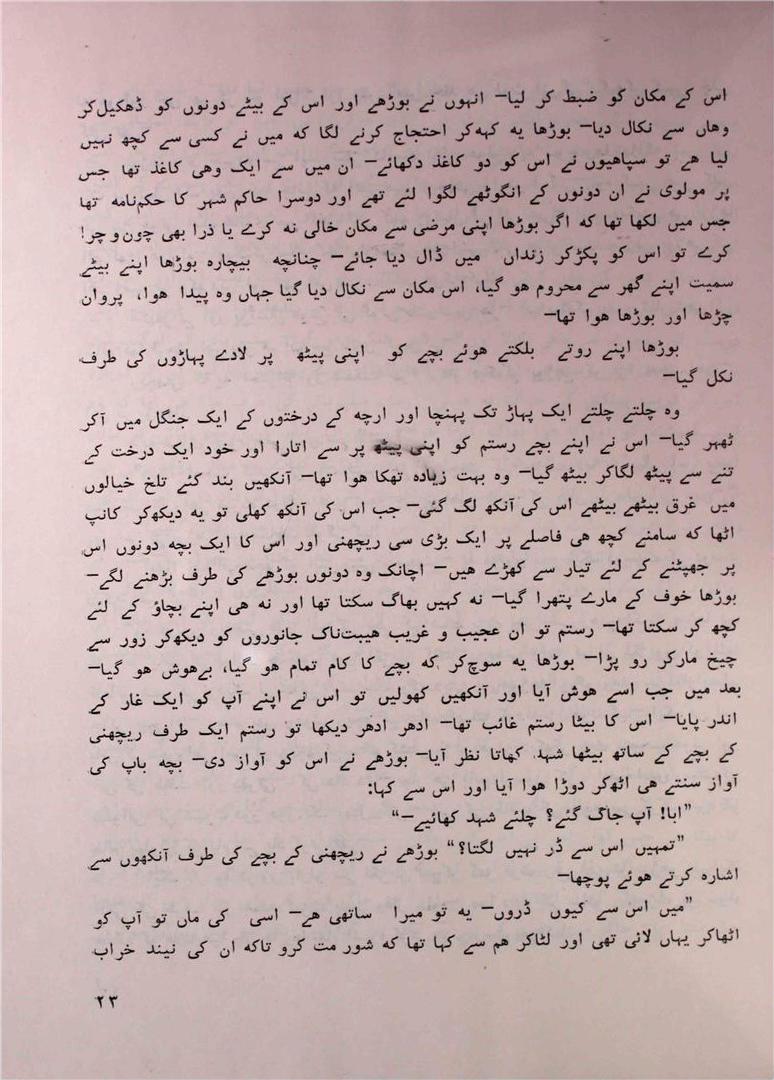 اس کے مکان کو ضبط کر لیا— انہوں نے بوڑھے اور اس کے بیٹے دونوں کو ڈھکیل‌کر
وہاں سے نکال دیا— بوڑھا یہ کہہ‌کر احتجاج کرنے لگا کہ میں نے کسی سے کچھ نہیں
لیا ہے تو سپاہیوں نے اس کو دو کاغذ دکھائے— ان میں سے ایک وہی کاغذ تھا جس
پر مولوی نے ان دونوں کے انگوٹھے لگوا لئے تھے اور دوسرا حاکم شہر کا حکم‌نامہ تھا
جس میں لکھا تھا کہ اگر بوڑھا اپنی مرضی سے مکان خالی نہ کرے یا ذرا بھی چون و چرا!
کرے تو اس کو پکڑکر زنداں میں ڈال دیا جائے— چنانچہ بیچارہ بوڑھا اپنے بیٹے
سمیت اپنے گھر سے محروم ہو گیا، اس مکان سے نکال دیا گیا جہاں وہ پیدا ہوا، پروان
چڑھا اور بوڑھا ہوا تھا—
بوڑھا اپنے روتے بلکتے ہوئے بچے کو اپنی پیٹھ پر لادے پہاڑوں کی طرف
نکل گیا—
وہ چلتے چلتے ایک پہاڑ تک پہنچا اور ارچہ کے درختوں کے ایک جنگل میں آکر
ٹھہر گیا— اس نے اپنے بچے رستم کو اپنی پیٹھ پر سے اتارا اور خود ایک درخت کے
تنے سے پیٹھ لگاکر بیٹھ گیا— وہ بہت زیادہ تھکا ہوا تھا— آنکھیں بند کئے تلخ خیالوں
میں غرق بیٹھے بیٹھے اس کی آنکھ لگ گئی— جب اس کی آنکھ کھلی تو یہ دیکھ‌کر کانپ
اٹھا کہ سامنے کچھ ہی فاصلے پر ایک بڑی سی ریچھنی اور اس کا ایک بچہ دونوں اس
پر جھپٹنے کے لئے تیار سے کھڑے ہیں— اچانک وہ دونوں بوڑھے کی طرف بڑھنے لگے—
بوڑھا خوف کے مارے پتھرا گیا— نہ کہیں بھاگ سکتا تھا اور نہ ہی اپنے بچاؤ کے لئے
کچھ کر سکتا تھا— رستم تو ان عجیب و غریب ہیبت‌ناک جانوروں کو دیکھ‌کر زور سے
چیخ مارکر رو پڑا— بوڑھا یہ سوچ‌کر کہ بچے کا کام تمام ہو گیا، بے‌ہوش ہو گیا—
بعد میں جب اسے ہوش آیا اور آنکھیں کھولیں تو اس نے اپنے آپ کو ایک غار کے
اندر پایا— اس کا بیٹا رستم غائب تھا— ادھر ادھر دیکھا تو رستم ایک طرف ریچھنی
کے بچے کے ساتھ بیٹھا شہد کھاتا نظر آیا— بوڑھے نے اس کو آواز دی— بچہ باپ کی
آواز سنتے ہی اٹھ‌کر دوڑا ہوا آیا اور اس سے کہا:
”ابا! آپ جاگ گئے؟ چلئے شہد کھائیے—“
”تمہیں اس سے ڈر نہیں لگتا؟“ بوڑھے نے ریچھنی کے بچے کی طرف آنکھوں سے
اشارہ کرتے ہوئے پوچھا—
”میں اس سے کیوں ڈروں— یہ تو میرا ساتھی ہے— اسی کی ماں تو آپ کو
اٹھاکر یہاں لائی تھی اور لٹاکر ہم سے کہا تھا کہ شور مت کرو تاکہ ان کی نیند خراب
۲۳